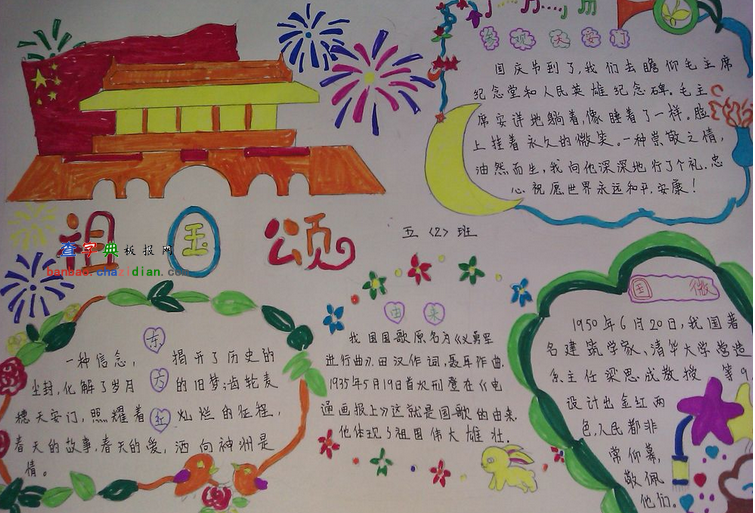 参观天安门
国庆节到了,我们去瞻仰毛主席
纪念堂和人民英雄纪念碑,毛主
席安详地躺着,像睡着了一样,脸
上挂着永久的微笑。一种崇敬之情,
油然而生,我向他深深地行了个礼,忠
心祝愿世界永远和平,安康!
祖国颂
查字典板报网
banbao.chazidian.com
五〈2〉班
东方红
一种信念, 揭开了历史的
尘封,化解了岁月 的旧梦;齿轮麦
穗天安门,照耀着 灿烂的征程,
春天的故事,春天的爱,洒向神州是
情。
由来
我国国歌原名为《义勇军
进行曲》,田汉作词,聂耳作曲,
1935年5月19日首次刊登在《电
通画报上》这就是国歌的由来,
他体现了祖国伟大雄壮.
国 徽
1950年6月20日,我国著
名建筑学家、清华大学营造
系主任梁思成教授 等9
设计出金红两
色,人民都非
常仰幕,
敬佩
他们。